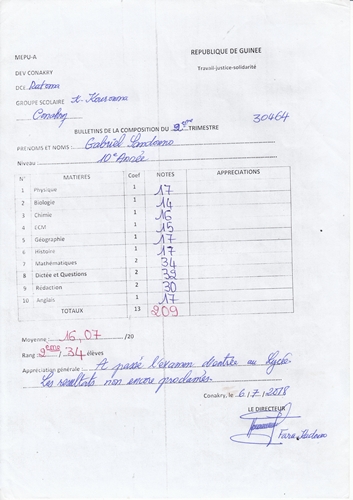 MEPU-A
REPUBLIQUE DE GUINEE
Travail-justice-solidarité
DEV CONAKRY
DCE Ratoma
GROUPE SCOLAIRE
Conakry
30464
BULLETINS DE LA COMPOSITION DU 2ème TRIMESTRE
PRENOMS ET NOMS : Gabriel
Niveau : 10e Année
N° MATIERES Coef NOTES APPRECIATIONS
1 Physique 1 17
2 Biologie 1 14
3 Chimie 1 16
4 ECM 1 15
5 Géographie 1 17
6 Histoire 1 17
7 Mathématiques 2 34
8 Dictée et Questions 2 32
9 Rédaction 2 30
10 Anglais 1 17
TOTAUX 13 209
Moyenne : 16,07 /20
Rang : 2ème / 34 élèves
Appréciation générale : A passé l'examen d'entrée au Lycée.
Les resultats non encore proclamés.
Conakry, le 6/7/2018
LE DIRECTEUR